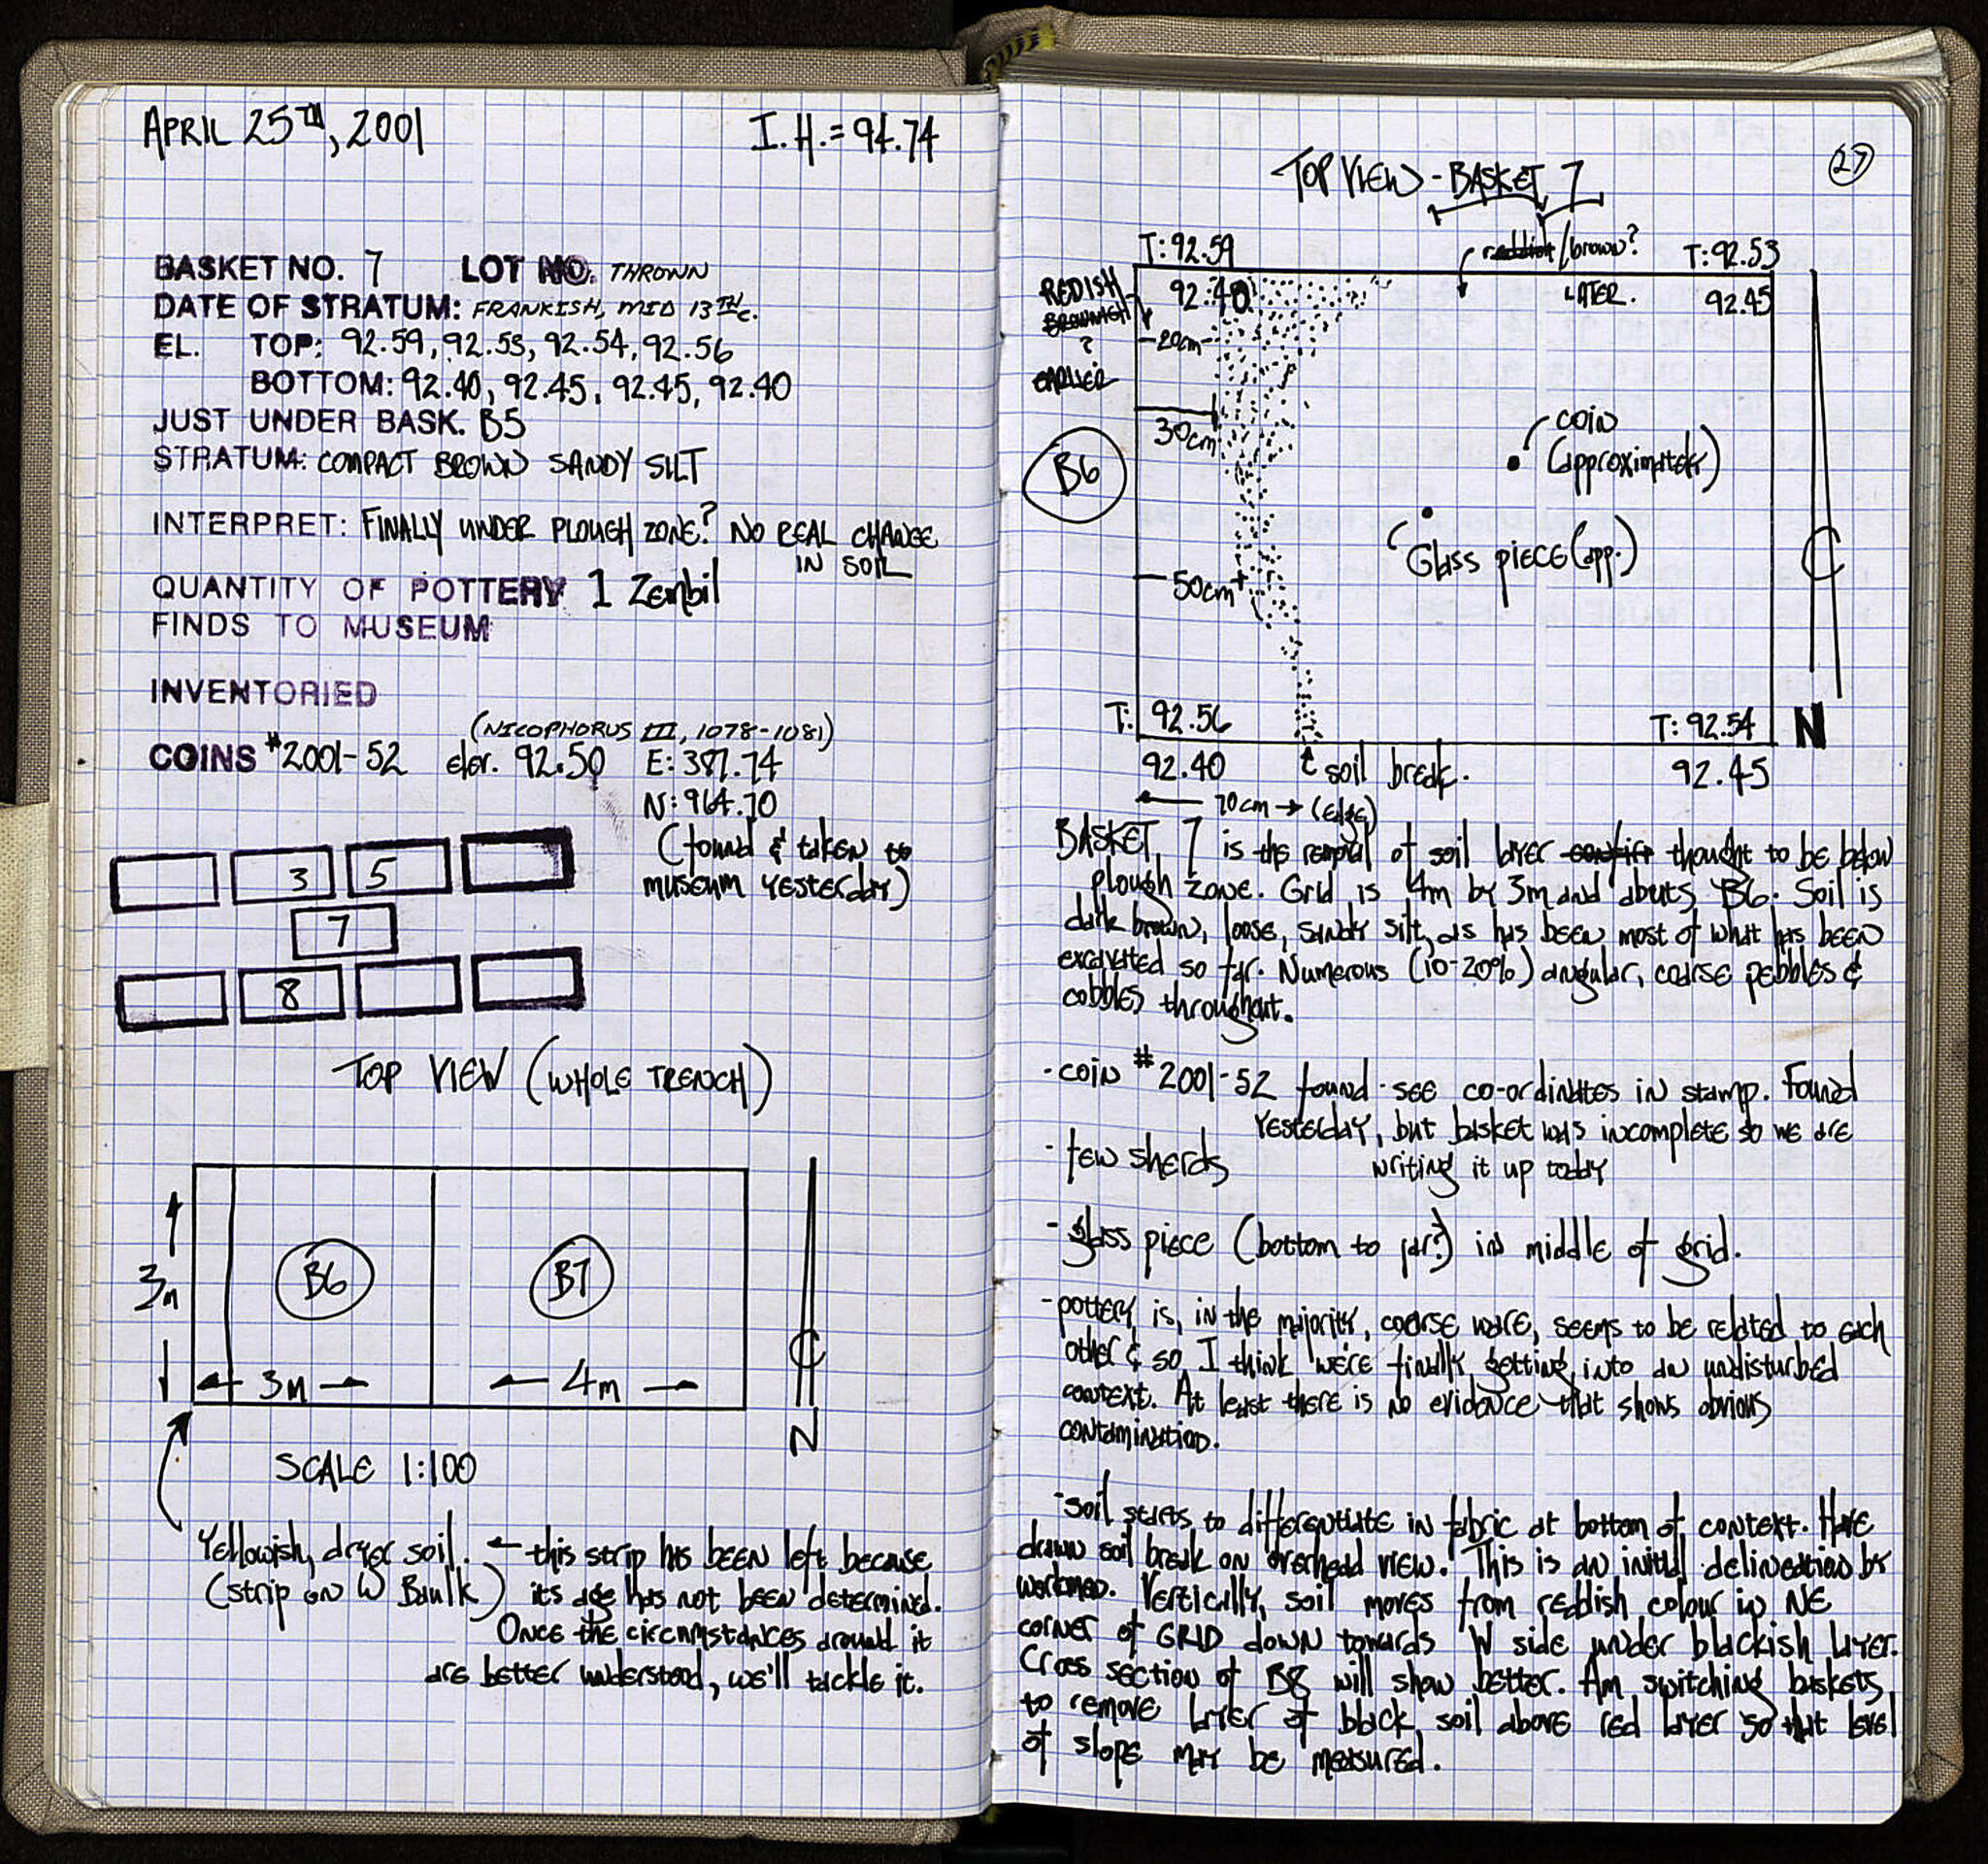 APRIL 25TH, 2001
I.H. = 94.74
BASKET NO. 7 LOT NO. THROWN
DATE OF STRATUM: FRANKISH, MID 13TH C.
EL. TOP: 92.59, 92.53, 92.54, 92.56
BOTTOM: 92.40, 92.45, 92.45, 92.40
JUST UNDER BASK. B5
STRATUM: COMPACT BROWN SANDY SILT
INTERPRET: FINALLY UNDER PLOUGH ZONE? NO REAL CHANGE
IN SOIL
QUANTITY OF POTTERY 1 Zembil
FINDS TO MUSEUM
INVENTORIED
(NICOPHORUS III, 1078-1081)
COINS #2001-52 elev. 92.50 E: 387.74
N: 964.70
(found & taken to
museum yesterday)
3 5
7
8
TOP VIEW (WHOLE TRENCH)
3m
B6
B7
3m
4m
N
SCALE 1:100
Yellowish, dryer soil. ← this strip has been left because
(strip on W Baulk) its age has not been determined.
Once the circumstances around it
are better understood, we'll tackle it.
27
TOP VIEW - BASKET 7
T: 92.59
reddish/brown?
T: 92.53
REDISH
BROWNISH
?
EARLIER
92.40
LATER.
92.45
20cm
30cm
coin
(approximately)
B6
Glass piece (app.)
50cm
T: 92.56
T: 92.54
N
92.40
soil break.
92.45
← 70cm → (edge)
BASKET 7 is the removal of soil layer thought to be below
plough zone. Grid is 4m by 3m and abuts B6. Soil is
dark brown, loose, sandy silt, as has been most of what has been
excavated so far. Numerous (10-20%) angular, coarse pebbles &
cobbles throughout.
- coin #2001-52 found - see co-ordinates in stamp. Found
yesterday, but basket was incomplete so we are
writing it up today
- few sherds
- glass piece (bottom to jar?) in middle of grid.
- pottery is, in the majority, coarse ware, seems to be related to each
other & so I think we're finally getting into an undisturbed
context. At least there is no evidence that shows obvious
contamination.
- soil starts to differentiate in fabric at bottom of context. Have
drawn soil break on overhead view. This is an initial delineation by
workmen. Vertically, soil moves from reddish colour in NE
corner of GRID down towards W side under blackish layer.
Cross section of B8 will show better. Am switching baskets
to remove layer of black soil above red layer so that level
of slope may be measured.